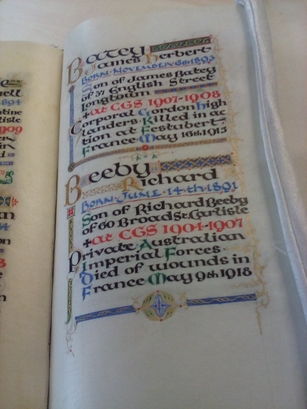 Batey
James Herbert
Born November 6th 1893
Son of James Batey
of 37 English Street
Longtown
at CGS 1907-1908
Corporal Gordon High
landers Killed in ac
tion at Festubert
France May 16th 1915
Beeby
Richard
Born June 14th 1891
Son of Richard Beeby
of 60 Broad St. Carlisle
at CGS 1904-1907
Private Australian
Imperial Forces
Died of wounds in
France May 9th 1918